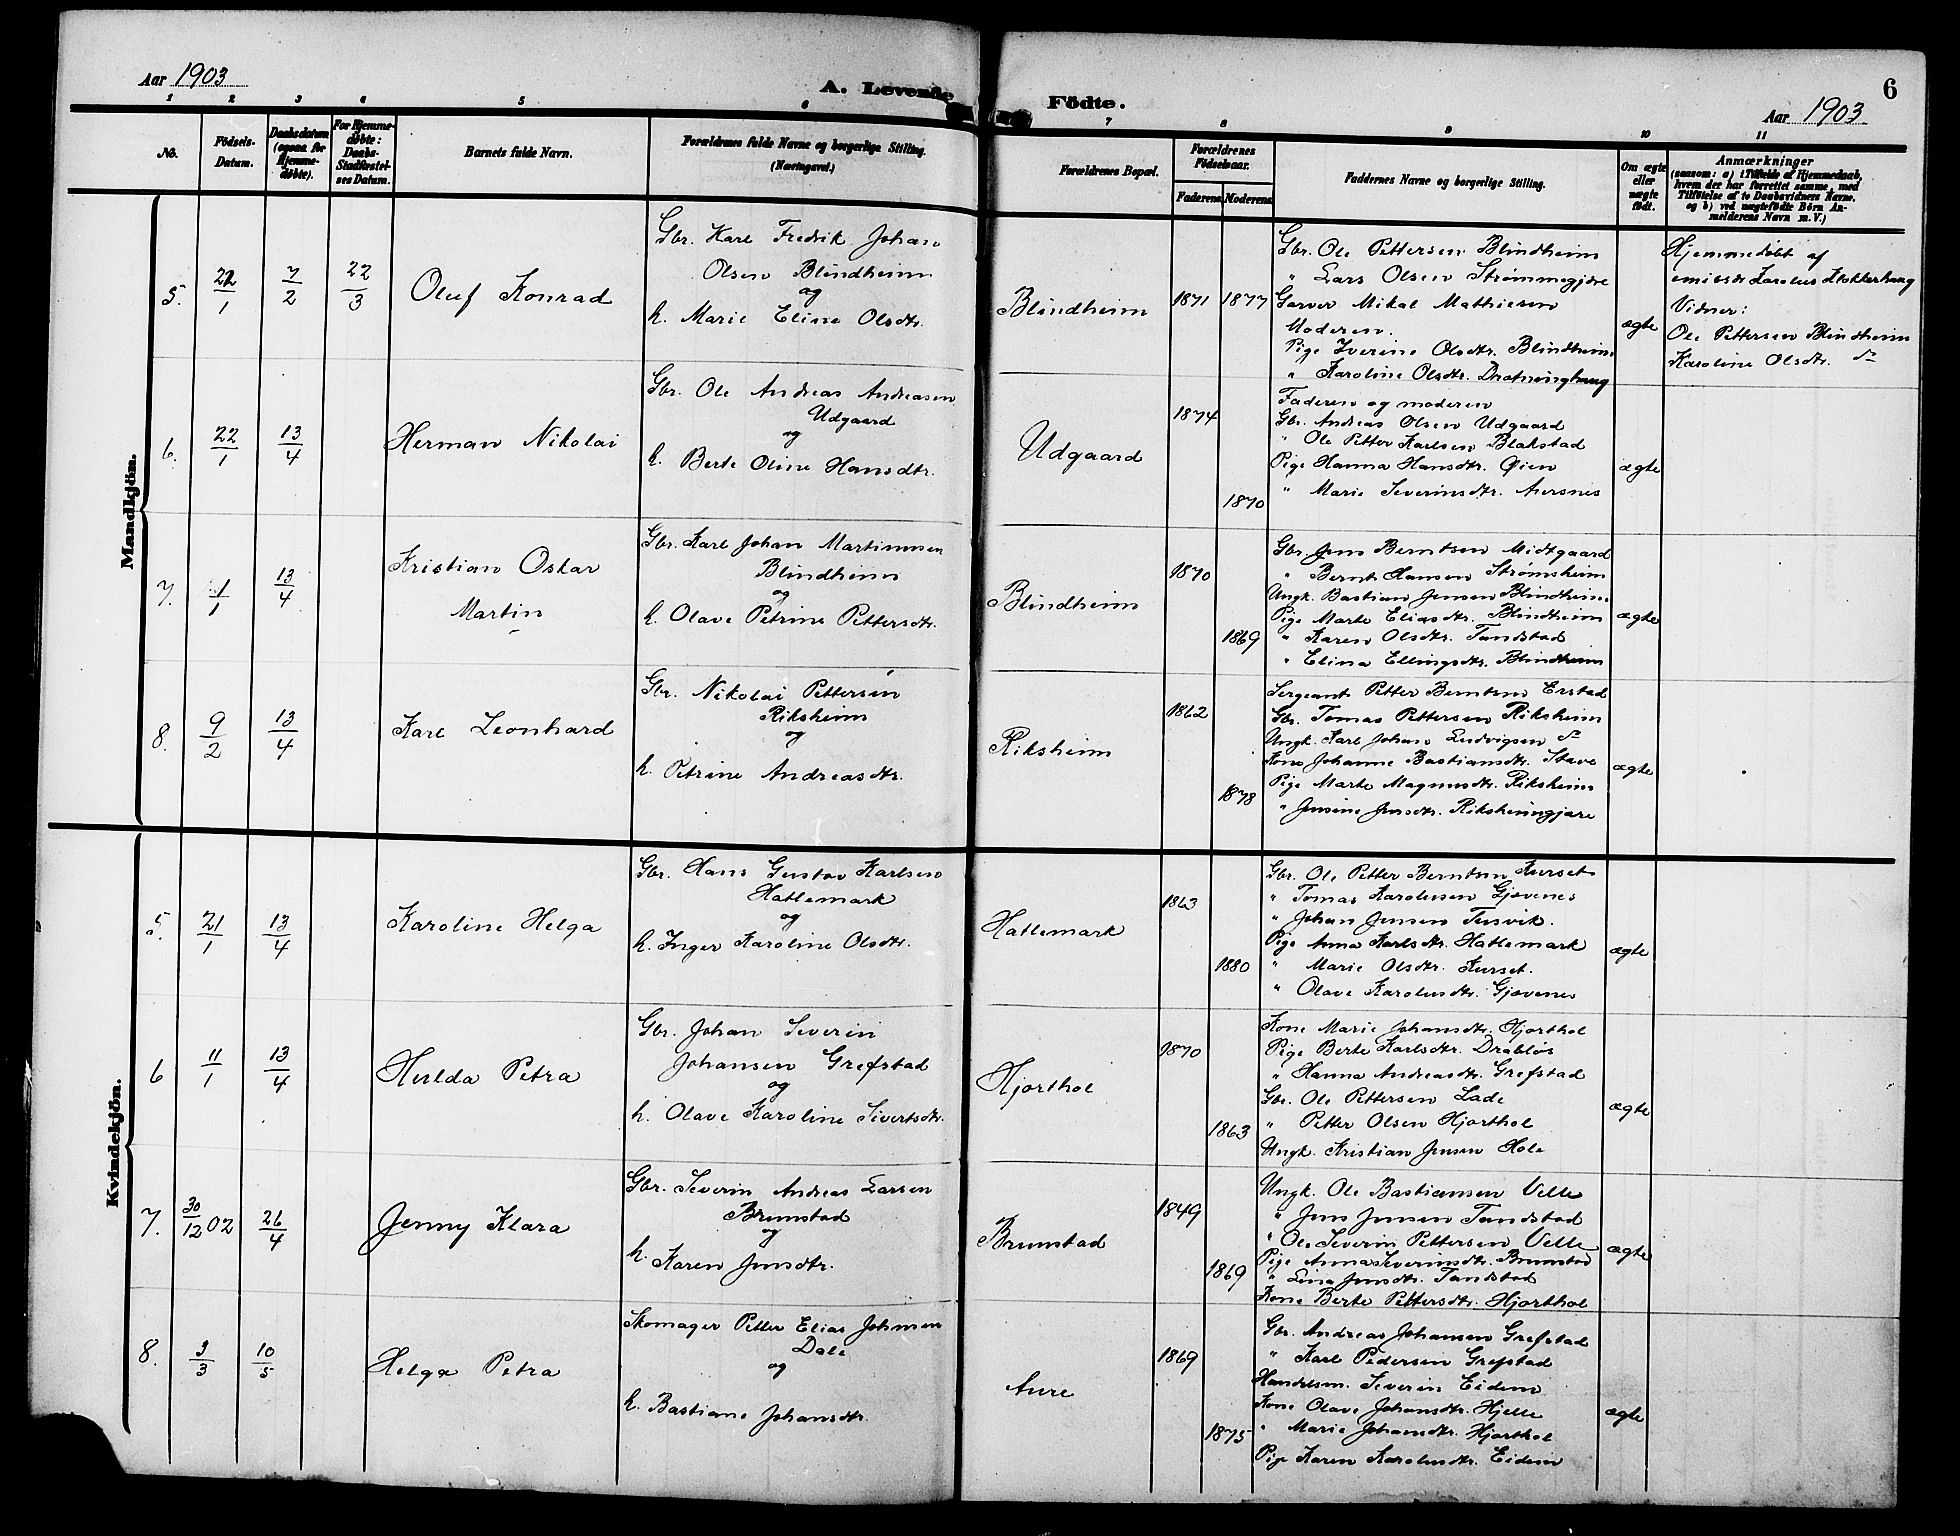 Aar 1903
A. Levende
Födte.
Aar 1903
6
1 2 3 4 5 6 7 8 9 10 11
No.
Födsels-Datum.
Daabsdatum (ogsaa for Hjemmedøbte).
For Hjemmedøbte: Daabs-Stadfæstelses Datum.
Barnets fulde Navn.
Forældrenes fulde Navne og borgerlige Stilling. (Næringsvei.)
Forældrenes Bopæl.
Forældrenes Födselsaar.
Faderens Moderens
Faddernes Navne og borgerlige Stilling.
Om ægte eller uægte født.
Anmærkninger
(saasom: a) i Tilfælde af Hjemmedaab, hvem der har forrettet samme, med Tilföielse af to Daabsvidners Navne. og b) ved uægtefödte Börn Anmelderens Navn m.V.)
Mandkjön.
5. 22/1 7/2 22/3
Oluf Konrad
Gbr. Karl Fredrik Johan
Olsen Blindheim
og
h. Marie Eline Olsdtr.
Blindheim
1871 1877
Gbr. Ole Pettersen Blindheim
" Lars Olsen Strømmegjære
Garver Mikal Mathiesen
Moderen.
Pige Iverine Olsdtr. Blindheim
" Karoline Olsdtr. Dratninghaug
ægte
Hjemmedøbt af
Karolus Klokkerhaug
Vidner:
Ole Pettersen Blindheim
Karoline Olsdtr. do
6. 22/1 13/4
Herman Nikolai
Gbr. Ole Andreas Andreasen
Udgaard
og
h. Berte Oline Hansdtr.
Udgaard
1874
1870
Faderen og moderen
Gbr. Andreas Olsen Udgaard
" Ole Petter Karlsen Blakstad
Pige Hanna Hansdtr. Øien
" Marie Severinsdtr. Aursnes
ægte
7. 1/1 13/4
Kristian Oskar
Martin
Gbr. Karl Johan Martinusen
Blindheim
og
h. Olave Petrine Pettersdtr.
Blindheim
1870
1869
Gbr. Jens Berntsen Midtgaard
" Bernt Hansen Strømsheim
Ungk. Bastian Jensen Blindheim
Pige Marte Eliasdtr. Blindheim
" Karen Olsdtr. Tandstad
" Elina Ellingsdtr. Blindheim
ægte
8. 9/2 13/4
Karl Leonhard
Gbr. Nikolai Pettersen
Riksheim
og
h. Petrine Andreasdtr.
Riksheim
1862
1878
Sergeant Petter Berntsen Erstad
Gbr. Tomas Pettersen Riksheim
Ungk. Karl Johan Ludvigsen do
Kone Johanne Bastiansdtr. Stave
Pige Marte Magnusdtr. Riksheim
" Jensine Jensdtr. Riksheimgjære
ægte
Kvindekjön.
5. 21/1 13/4
Karoline Helga
Gbr. Hans Gustav Karlsen
Hatlemark
og
h. Inger Karoline Olsdtr.
Hatlemark
1863
1880
Gbr. Ole Petter Berntsen Kurset
" Tomas Karolusen Gjævenes
" Johan Jensen Tusvik.
Pige Anna Karlsdtr. Hatlemark
" Marie Olsdtr. Kurset.
" Olave Karolusdtr. Gjævenes
ægte
6 11/1 13/4
Hulda Petra
Gbr. Johan Severin
Johansen Grefstad
og
h. Olave Karoline Sivertsdtr.
Hjorthol
1870
1863
Kone Marie Johansdtr. Hjorthol
Pige Berte Karlsdtr. Drabløs
" Hanna Andreasdtr. Grefstad
Gbr. Ole Pettersen Lade
" Petter Olsen Hjorthol
Ungk. Kristian Jensen Hole
ægte
7. 30/12 02 26/4
Jenny Klara
Gbr. Severin Andreas Larsen
Brunstad
og
h. Karen Jensdtr.
Brunstad
1849
1869
Ungk. Ole Bastiansen Velle
" Jens Jensen Tandstad
" Ole Severin Pettersen Velle
Pige Anna Severinsdtr. Brunstad
" Lina Jensdtr. Tandstad
Kone Berte Pettersdtr. Hjorthol
ægte
8. 3/3 10/5
Helga Petra
Skomager Petter Elias Johnsen
Dale
og
h. Bastiane Johansdtr.
Aure
1869
1875
Gbr. Andreas Johansen Grefstad
" Karl Pedersen Grefstad
Handelsm. Severin Eidem
Kone Olave Johansdtr. Hjelle
" Marie Johansdtr. Hjorthol
Pige Karen Karolusdtr. Eidem
ægte